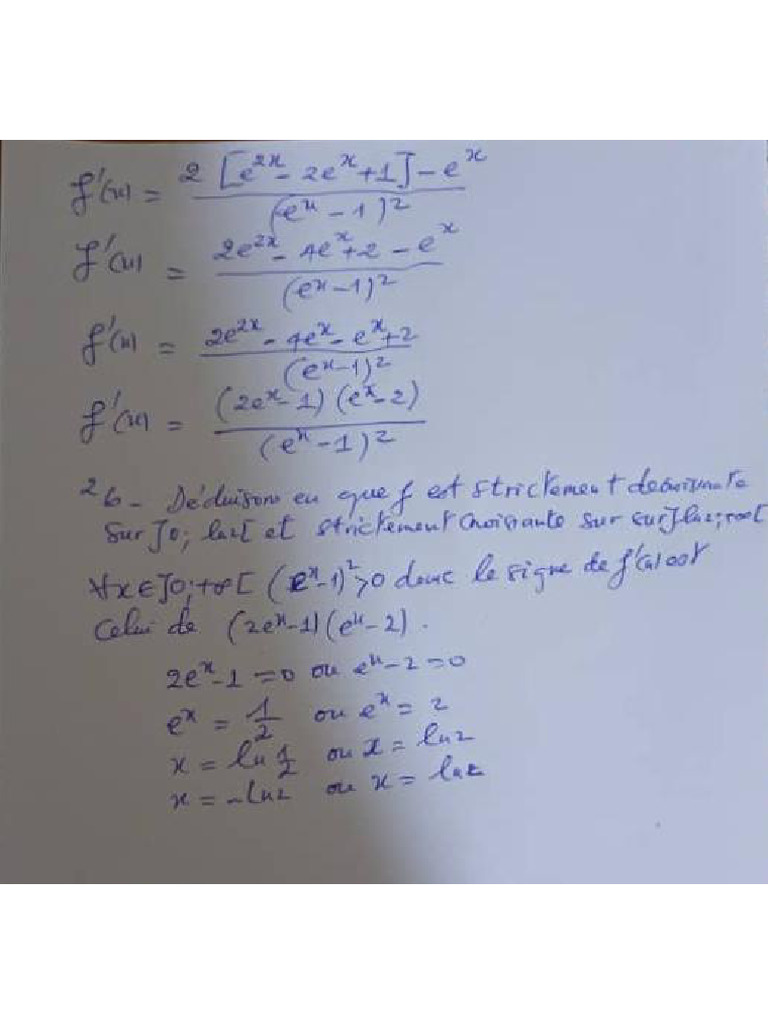 f'(x) = 2 [e^2x - 2e^x + 1] - e^x / (e^x - 1)^2
f'(x) = 2e^2x - 4e^x + 2 - e^x / (e^x - 1)^2
f'(x) = 2e^2x - 4e^x - e^x + 2 / (e^x - 1)^2
f'(x) = (2e^x - 1) (e^x - 2) / (e^x - 1)^2
2b - Déduisons en que f est strictement décroissante
sur ]0; ln2[ et strictement croissante sur sur ]ln2; +∞[
∀x ∈ ]0; +∞[ (e^x - 1)^2 > 0 donc le signe de f'(x) est
Celui de (2e^x - 1) (e^x - 2).
2e^x - 1 = 0 ou e^x - 2 = 0
e^x = 1/2 ou e^x = 2
x = ln 1/2 ou x = ln2
x = -ln2 ou x = ln2